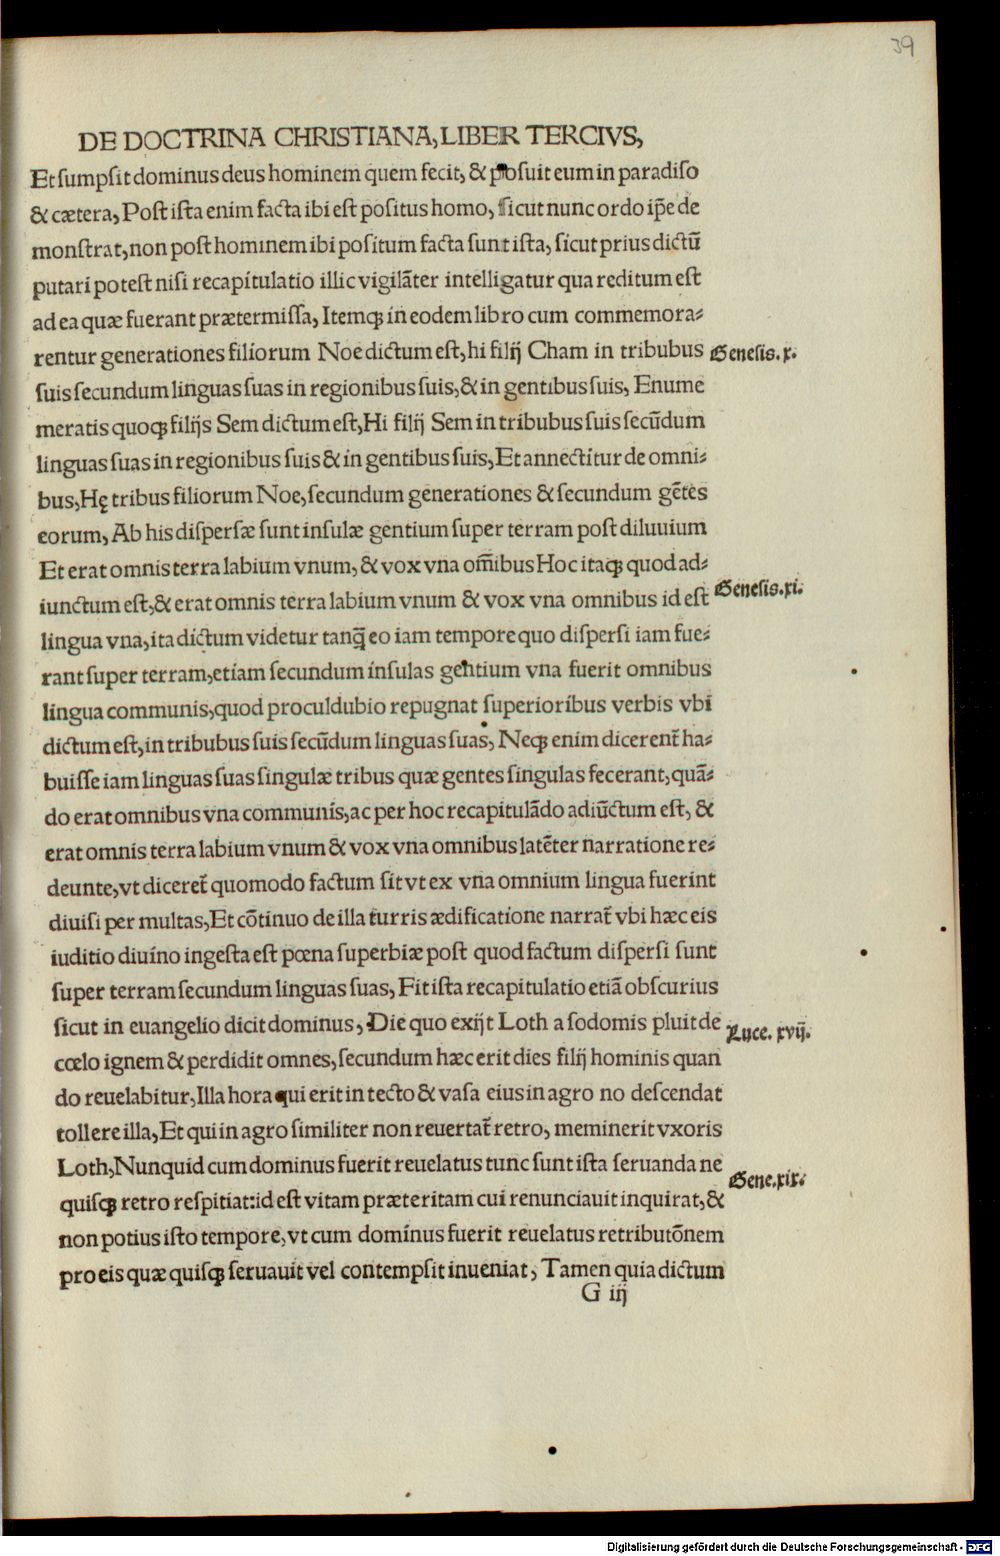 39
DE DOCTRINA CHRISTIANA, LIBER TERCIVS,
Et sumpsit dominus deus hominem quem fecit, & posuit eum in paradiso
& cætera, Post ista enim facta ibi est positus homo, sicut nunc ordo ip̄e de
monstrat, non post hominem ibi positum facta sunt ista, sicut prius dictū
putari potest nisi recapitulatio illic vigilāter intelligatur qua reditum est
ad ea quæ fuerant prætermissa, Itemqꝫ in eodem libro cum commemora⸗
rentur generationes filiorum Noe dictum est, hi filĳ Cham in tribubus
Genesis. x.
suis secundum linguas suas in regionibus suis, & in gentibus suis, Enume
meratis quoqꝫ filĳs Sem dictum est, Hi filĳ Sem in tribubus suis secūdum
linguas suas in regionibus suis & in gentibus suis, Et annectitur de omni⸗
bus, Hę tribus filiorum Noe, secundum generationes & secundum gētes
eorum, Ab his dispersæ sunt insulæ gentium super terram post diluuium
Et erat omnis terra labium vnum, & vox vna om̄ibus Hoc itaqꝫ quod ad⸗
iunctum est, & erat omnis terra labium vnum & vox vna omnibus id est
Genesis. xi.
lingua vna, ita dictum videtur tanq̄ eo iam tempore quo dispersi iam fue⸗
rant super terram, etiam secundum insulas gentium vna fuerit omnibus
lingua communis, quod proculdubio repugnat superioribus verbis vbi
dictum est, in tribubus suis secūdum linguas suas, Neqꝫ enim dicerent̄ ha⸗
buisse iam linguas suas singulæ tribus quæ gentes singulas fecerant, quā⸗
do erat omnibus vna communis, ac per hoc recapitulādo adiūctum est, &
erat omnis terra labium vnum & vox vna omnibus latēter narratione re⸗
deunte, vt diceret̄ quomodo factum sit vt ex vna omnium lingua fuerint
diuisi per multas, Et cōtinuo de illa turris ædificatione narrat̄ vbi hæc eis
iuditio diuino ingesta est pœna superbiæ post quod factum dispersi sunt
super terram secundum linguas suas, Fit ista recapitulatio etiā obscurius
sicut in euangelio dicit dominus, Die quo exĳt Loth a sodomis pluit de
Luce. xvĳ.
cœlo ignem & perdidit omnes, secundum hæc erit dies filĳ hominis quan
do reuelabitur, Illa hora qui erit in tecto & vasa eius in agro no descendat
tollere illa, Et qui in agro similiter non reuertat̄ retro, meminerit vxoris
Loth, Nunquid cum dominus fuerit reuelatus tunc sunt ista seruanda ne
Gene. xix.
quisqꝫ retro respitiat: id est vitam præteritam cui renunciauit inquirat, &
non potius isto tempore, vt cum dominus fuerit reuelatus retributōnem
pro eis quæ quisqꝫ seruauit vel contempsit inueniat, Tamen quia dictum
G iĳ
Digitalisierung gefördert durch die Deutsche Forschungsgemeinschaft - DFG